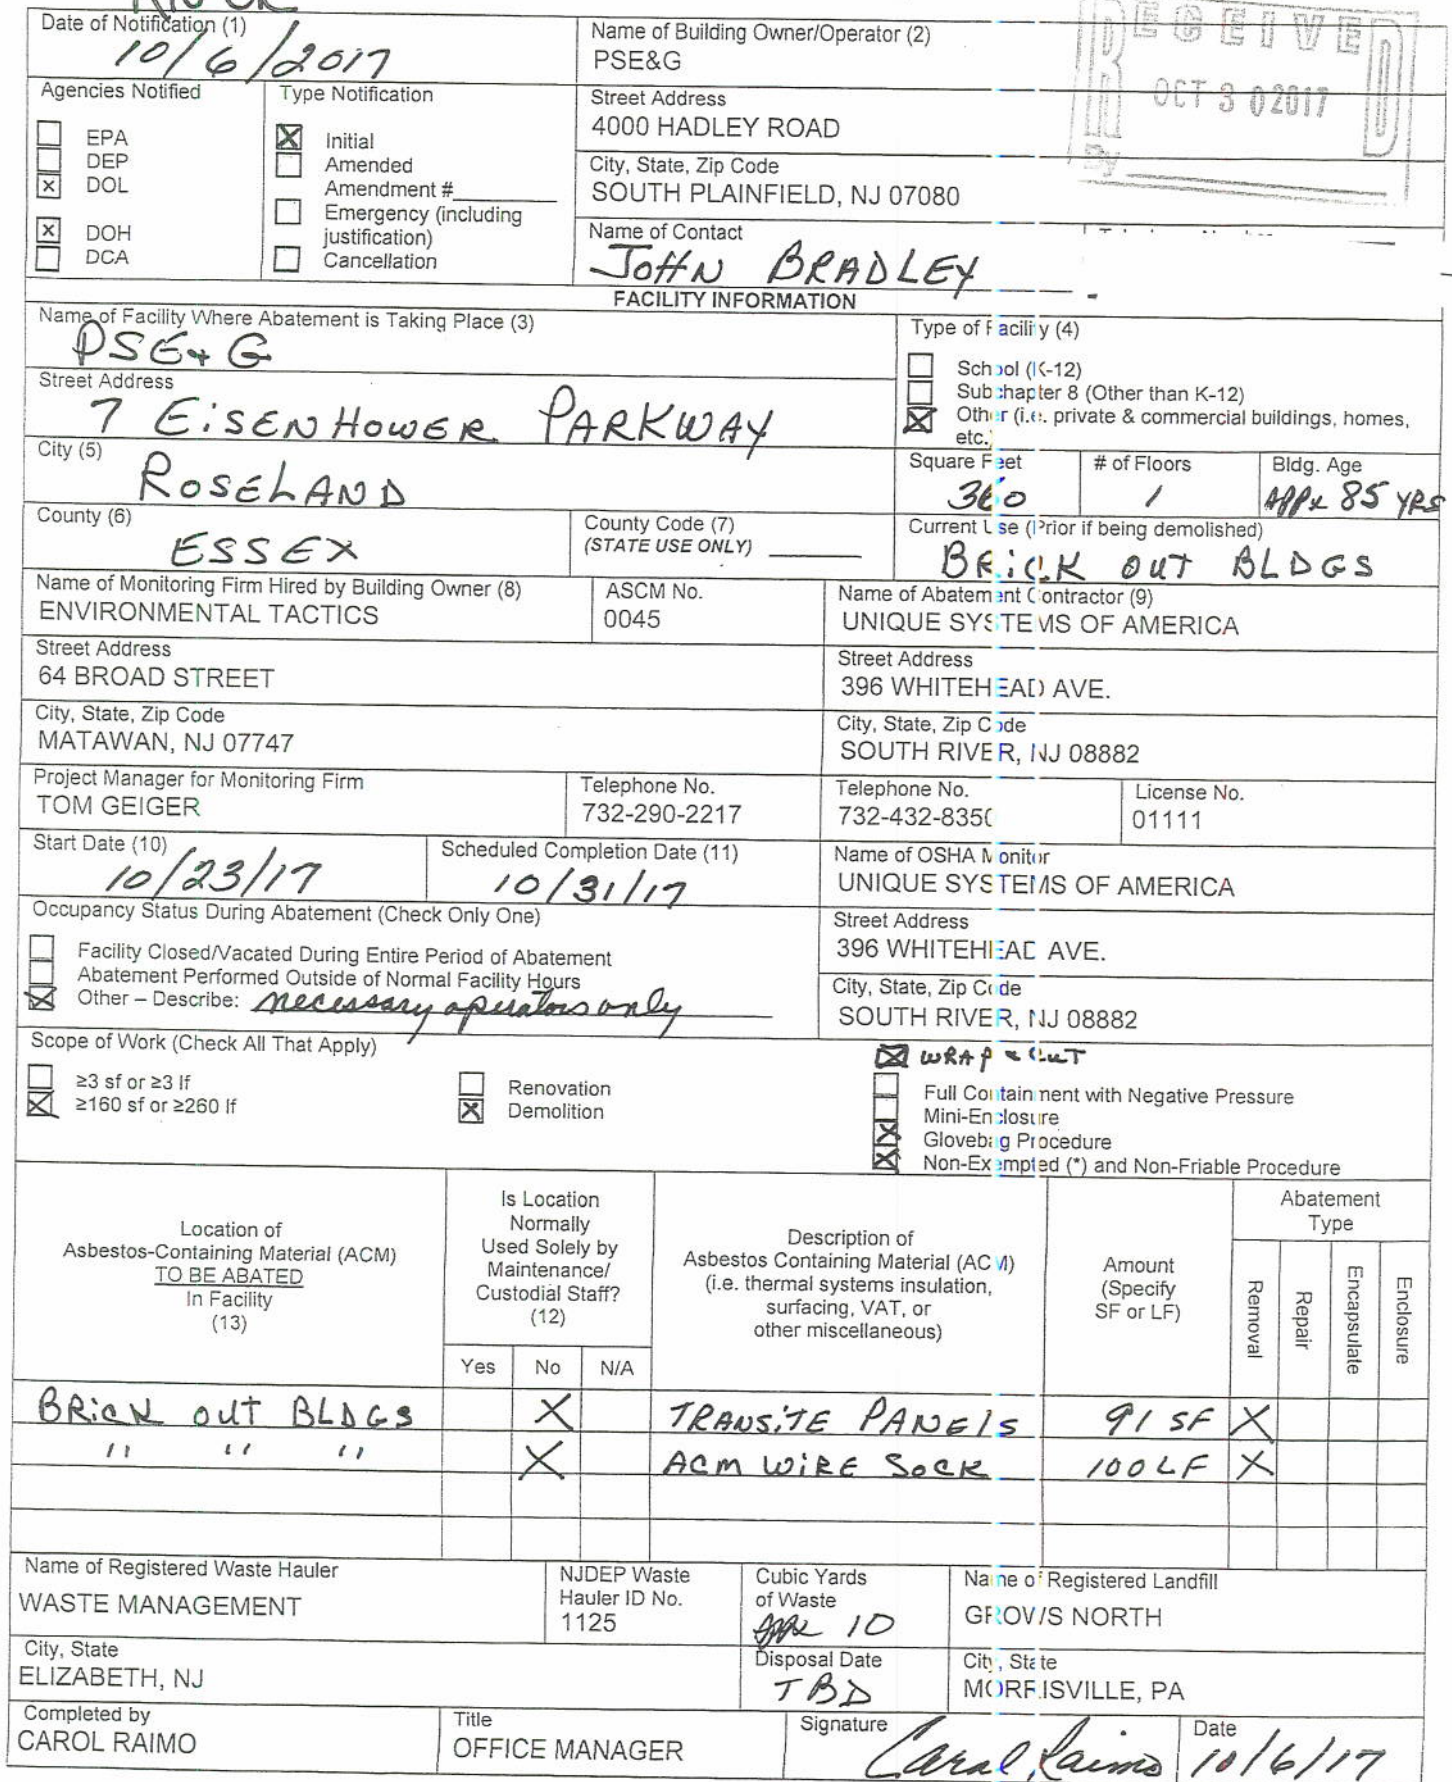 Date of Notification (1)
10/6/2017
Name of Building Owner/Operator (2)
PSE&G
RECEIVED
OCT 30 2017
By
Agencies Notified
EPA
DEP
x DOL
x DOH
DCA
Type Notification
X Initial
Amended
Amendment #
Emergency (including
justification)
Cancellation
Street Address
4000 HADLEY ROAD
City, State, Zip Code
SOUTH PLAINFIELD, NJ 07080
Name of Contact
JOHN BRADLEY
FACILITY INFORMATION
Name of Facility Where Abatement is Taking Place (3)
PSE+G
Street Address
7 EiSENHOWER PARKWAY
City (5)
ROSELAND
County (6)
ESSEX
County Code (7)
(STATE USE ONLY)
Type of Facility (4)
School (K-12)
Subchapter 8 (Other than K-12)
X Other (i.e. private & commercial buildings, homes,
etc.)
Square Feet
360
# of Floors
1
Bldg. Age
APPx 85 YRS
Current Use (Prior if being demolished)
BRiCK OUT BLDGS
Name of Monitoring Firm Hired by Building Owner (8)
ENVIRONMENTAL TACTICS
ASCM No.
0045
Name of Abatement Contractor (9)
UNIQUE SYSTEMS OF AMERICA
Street Address
64 BROAD STREET
Street Address
396 WHITEHEAD AVE.
City, State, Zip Code
MATAWAN, NJ 07747
City, State, Zip Code
SOUTH RIVER, NJ 08882
Project Manager for Monitoring Firm
TOM GEIGER
Telephone No.
732-290-2217
Telephone No.
732-432-8350
License No.
01111
Start Date (10)
10/23/17
Scheduled Completion Date (11)
10/31/17
Name of OSHA Monitor
UNIQUE SYSTEMS OF AMERICA
Occupancy Status During Abatement (Check Only One)
Facility Closed/Vacated During Entire Period of Abatement
Abatement Performed Outside of Normal Facility Hours
X Other – Describe: necessary operators only
Street Address
396 WHITEHEAD AVE.
City, State, Zip Code
SOUTH RIVER, NJ 08882
Scope of Work (Check All That Apply)
≥3 sf or ≥3 lf
X ≥160 sf or ≥260 lf
Renovation
X Demolition
X WRAP & CUT
Full Containment with Negative Pressure
Mini-Enclosure
X Glovebag Procedure
X Non-Exempted (*) and Non-Friable Procedure
Location of
Asbestos-Containing Material (ACM)
TO BE ABATED
In Facility
(13)
Is Location
Normally
Used Solely by
Maintenance/
Custodial Staff?
(12)
Yes No N/A
Description of
Asbestos Containing Material (ACM)
(i.e. thermal systems insulation,
surfacing, VAT, or
other miscellaneous)
Amount
(Specify
SF or LF)
Abatement
Type
Removal
Repair
Encapsulate
Enclosure
BRiCK OUT BLDGS X TRANSiTE PANElS 91 SF X
" " " X ACM WiRE SOCK 100 LF X
Name of Registered Waste Hauler
WASTE MANAGEMENT
NJDEP Waste
Hauler ID No.
1125
Cubic Yards
of Waste
appx 10
Name of Registered Landfill
GROWS NORTH
City, State
ELIZABETH, NJ
Disposal Date
TBD
City, State
MORRISVILLE, PA
Completed by
CAROL RAIMO
Title
OFFICE MANAGER
Signature
Carol Raimo
Date
10/6/17